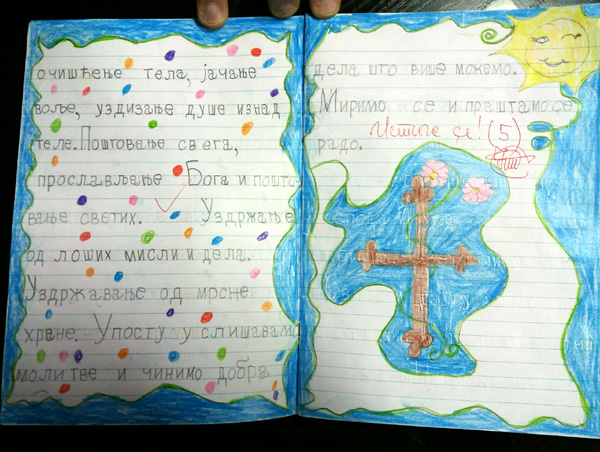 очишћење тела, јачање
воље, уздизање душе изнад
теле. Поштовање свега,
прослављање Бога и пошто
вање светих. Уздржање
од лоших мисли и дела.
Уздржавање од мрсне
хране. Упосту у слишавамо
молитве и чинимо добра
дела што више можемо.
Миримо се и праштамо се
радо.
(5)